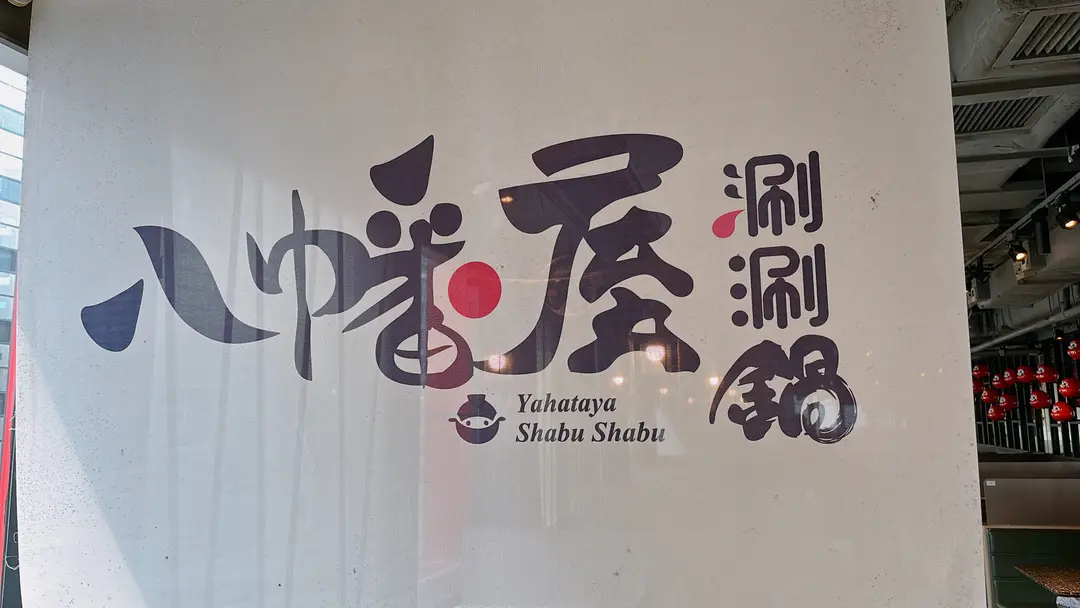 八幡屋
涮涮鍋
Yahataya
Shabu Shabu